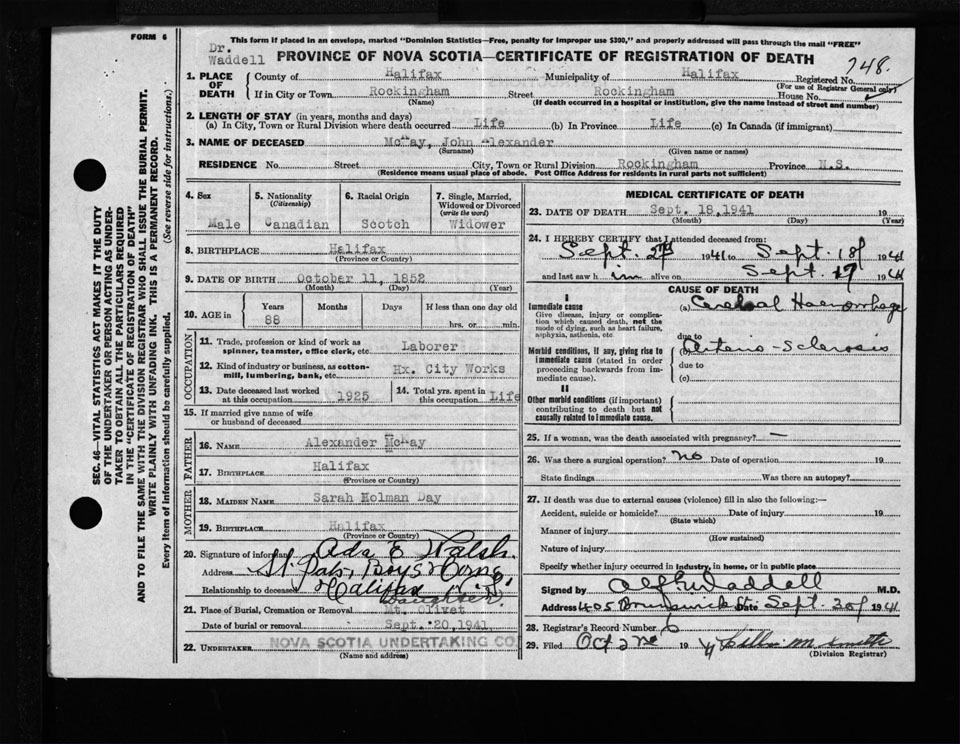 This form if placed in an envelope, marked "Dominion Statistics—Free, penalty for improper use $300," and properly addressed will pass through the mail "FREE"
FORM 6
Dr.
Waddell
PROVINCE OF NOVA SCOTIA—CERTIFICATE OF REGISTRATION OF DEATH
748.
1. PLACE OF DEATH County of Halifax Municipality of Halifax Registered No.
(For use of Registrar General only)
If in City or Town Rockingham Street Rockingham House No.
(Name) (If death occurred in a hospital or institution, give the name instead of street and number)
2. LENGTH OF STAY (in years, months and days)
(a) In City, Town or Rural Division where death occurred Life (b) In Province Life (c) In Canada (if immigrant)
3. NAME OF DECEASED McKay, John Alexander
(Surname) (Given name or names)
RESIDENCE No. Street City, Town or Rural Division Rockingham Province N.S.
(Residence means usual place of abode. Post Office Address for residents in rural parts not sufficient)
4. Sex 5. Nationality (Citizenship) 6. Racial Origin 7. Single, Married, Widowed or Divorced (write the word)
Male Canadian Scotch Widower
8. BIRTHPLACE Halifax
(Province or Country)
9. DATE OF BIRTH October 11, 1852
(Month) (Day) (Year)
10. AGE in Years Months Days If less than one day old
88 hrs. or min.
OCCUPATION
11. Trade, profession or kind of work as spinner, teamster, office clerk, etc Laborer
12. Kind of industry or business, as cotton-mill, lumbering, bank, etc. Hx. City Works
13. Date deceased last worked at this occupation 1925 14. Total yrs. spent in this occupation Life
15. If married give name of wife or husband of deceased
FATHER
16. NAME Alexander McKay
17. BIRTHPLACE Halifax
(Province or Country)
MOTHER
18. MAIDEN NAME Sarah Holman Day
19. BIRTHPLACE Halifax
(Province or Country)
20. Signature of informant Ada E Walsh.
Address St. Pats, Boys Home,
Halifax N.S.
Relationship to deceased Daughter.
21. Place of Burial, Cremation or Removal Mt. Olivet
Date of burial or removal Sept. 20, 1941
22. UNDERTAKER NOVA SCOTIA UNDERTAKING CO.
(Name and address)
MEDICAL CERTIFICATE OF DEATH
23. DATE OF DEATH Sept. 18, 1941 19
(Month) (Day) (Year)
24. I HEREBY CERTIFY that I attended deceased from:
Sept. 2nd 1941 to Sept. 18th 1941
and last saw him alive on Sept. 17 1941
CAUSE OF DEATH
I
Immediate cause (a) Cerebral Haemorrhage
Give disease, injury or complication which caused death, not the mode of dying, such as heart failure, asphyxia, asthenia, etc.
due to
Morbid conditions, if any, giving rise to immediate cause (stated in order proceeding backwards from immediate cause). (b) Arterio-Sclerosis
due to
(c)
II
Other morbid conditions (if important) contributing to death but not causally related to immediate cause.
25. If a woman, was the death associated with pregnancy? —
26. Was there a surgical operation? No Date of operation 19
State findings Was there an autopsy?
27. If death was due to external causes (violence) fill in also the following:—
Accident, suicide or homicide? Date of injury 19
(State which)
Manner of injury
(How sustained)
Nature of injury
Specify whether injury occurred in industry, in home, or in public place
Signed by Waddell M.D.
Address 405 Brunswick St Date Sept. 20th 1941
28. Registrar's Record Number 6
29. Filed Oct 2nd 19 41
(Division Registrar)
SEC. 46—VITAL STATISTICS ACT MAKES IT THE DUTY
OF THE UNDERTAKER OR PERSON ACTING AS UNDERTAKER
TO OBTAIN ALL THE PARTICULARS REQUIRED
IN THE "CERTIFICATE OF REGISTRATION OF DEATH"
AND TO FILE THE SAME WITH THE DIVISION REGISTRAR WHO SHALL ISSUE THE BURIAL PERMIT.
WRITE PLAINLY WITH UNFADING INK. THIS IS A PERMANENT RECORD.
Every item of information should be carefully supplied. (See reverse side for instructions.)